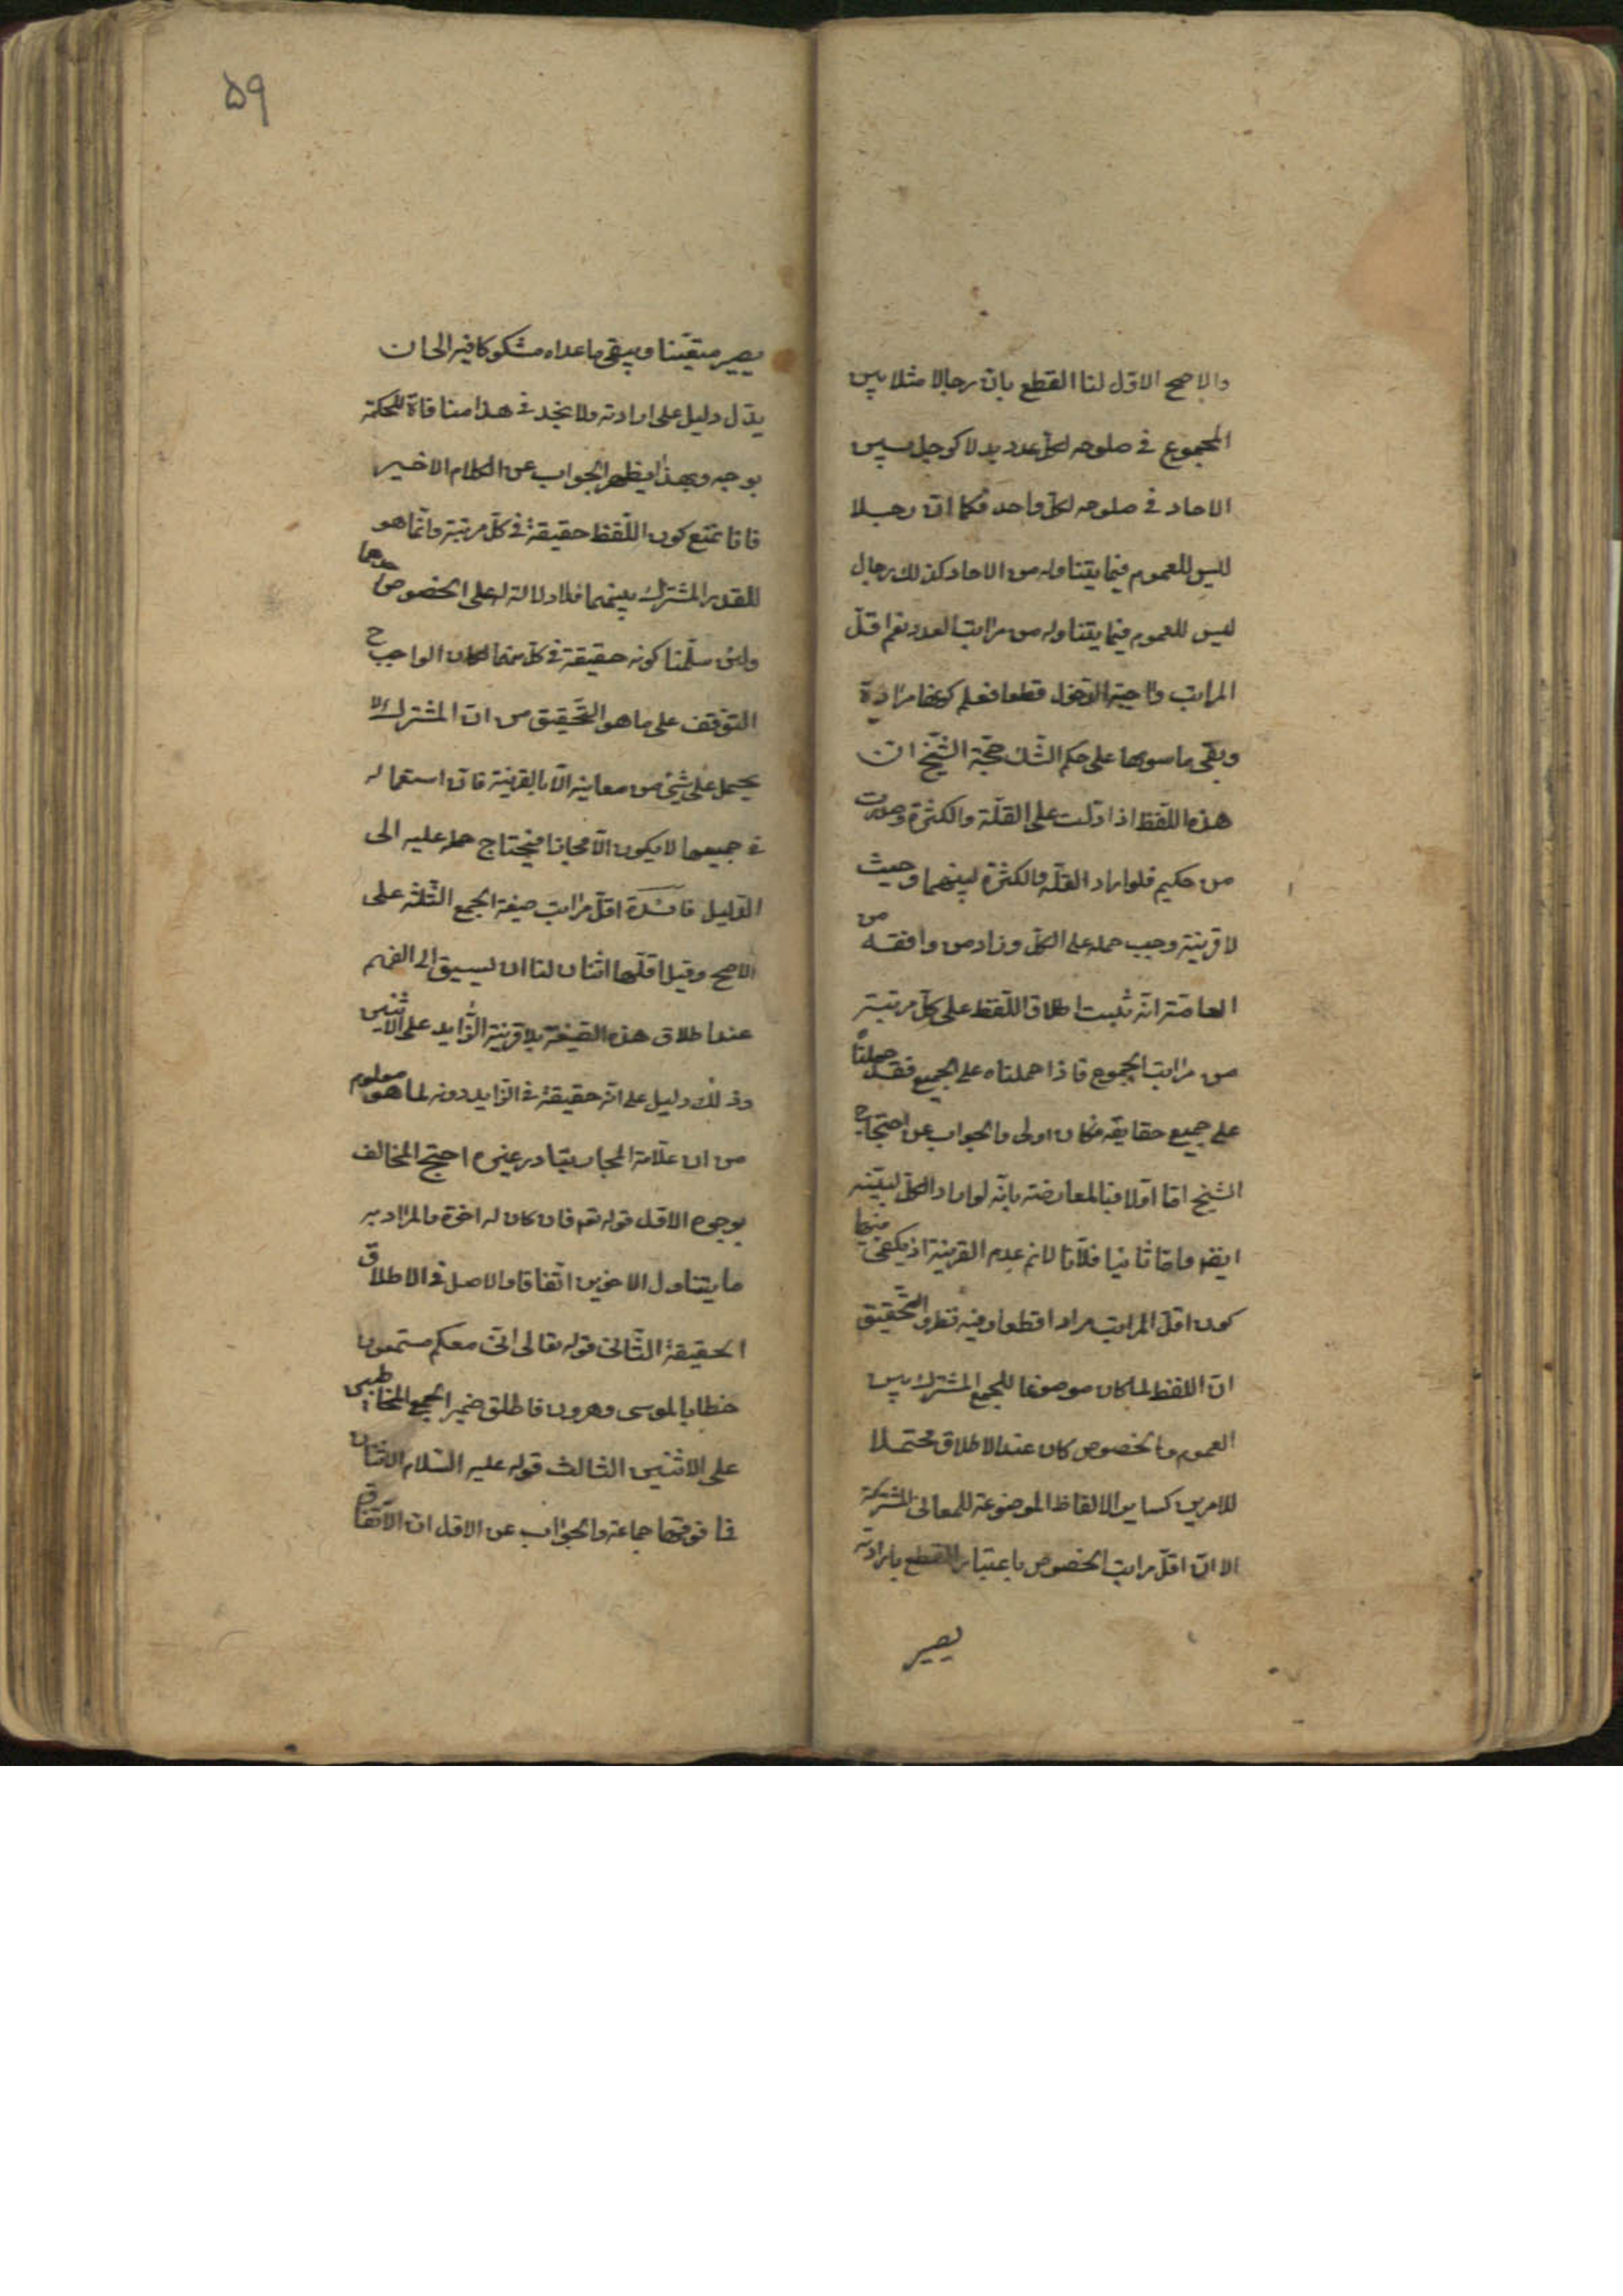 والاصح الاول لنا القطع بان رجالا مثلا بين
المجموع فى صلوحه لكل عدد بدلا كرجل بين
الاحاد فى صلوحه لكل واحد فكما ان رجلا
ليس للعموم فيما يتناوله من الاحاد كذلك رجال
ليس للعموم فيما يتناوله من مراتب العدد نعم اقل
المراتب واجبة الدخول قطعا فعلم كونها مرادة
وبقى ما سويها على حكم الشك حجة الشيخ ان
هذه اللفظ اذا دلت على القلة والكثرة وصدرت
من حكيم فلو اراد القلة والكثرة لبينهما وحيث
لا قرينة وجب حمله على الكل وزاد من وافقه من
العامة انه ثبت اطلاق اللفظ على كل مرتبة
من مراتب الجموع فاذا حملناه على الجميع فقد حملنا
على جميع حقايقه فكان اولى والجواب عن احتجاج
الشيخ اما اولا فبالمعارضة بانه لو اراد الكل لبينه
ايضا واما ثانيا فلانا لا نم عدم القرينة اذ يكفى فيها
كون اقل المراتب مرادا قطعا وفيه نظر والتحقيق
ان اللفظ لما كان موضوعا للجمع المشترك بين
العموم والخصوص كان عند الاطلاق محتملا
للامرين كساير الالفاظ الموضوعة للمعانى المشتركة
الا ان اقل مراتب الخصوص باعتبار القطع بارادته
يصير
۵۹
يصير متيقنا ويبقى ما عداه مشكوكا فيه الى ان
يدل دليل على ارادته ولا نجد فى هذا منافاة للحكمة
بوجه وبهذا يظهر الجواب عن الكلام الاخير
فانا نمنع كون اللفظ حقيقة فى كل مرتبة وانما هو
للقدر المشترك بينهما فلا دلالة له على الخصوص احدهما
ولئن سلمنا كونه حقيقة فى كل منها لكان الواجب ح
التوقف على ما هو التحقيق من ان المشترك لا
يحمل على شئ من معانيه الا بالقرينة فان استعماله
فى جميعها لا يكون الا مجازا فيحتاج حمله عليه الى
الدليل فائدة اقل مراتب صيغة الجمع الثلثة على
الاصح وقيل اقلها اثنان لنا ان يسبق الى الفهم
عند اطلاق هذه الصيغة بلا قرينة الزايد على الاثنين
وذلك دليل على انه حقيقة فى الزايد دونه لما هو معلوم
من ان علامة المجاز تبادر غيره احتج المخالف
بوجوه الاول قوله تع فان كان له اخوة والمراد به
ما يتناول الاخوين اتفاقا والاصل فى الاطلاق
الحقيقة الثانى قوله تعالى انى معكم مستمعون
خطابا لموسى وهرون فاطلق ضمير الجمع المخاطبين
على الاثنين الثالث قوله عليه السلام الاثنان
فما فوقهما جماعة والجواب عن الاول ان الاتفاق